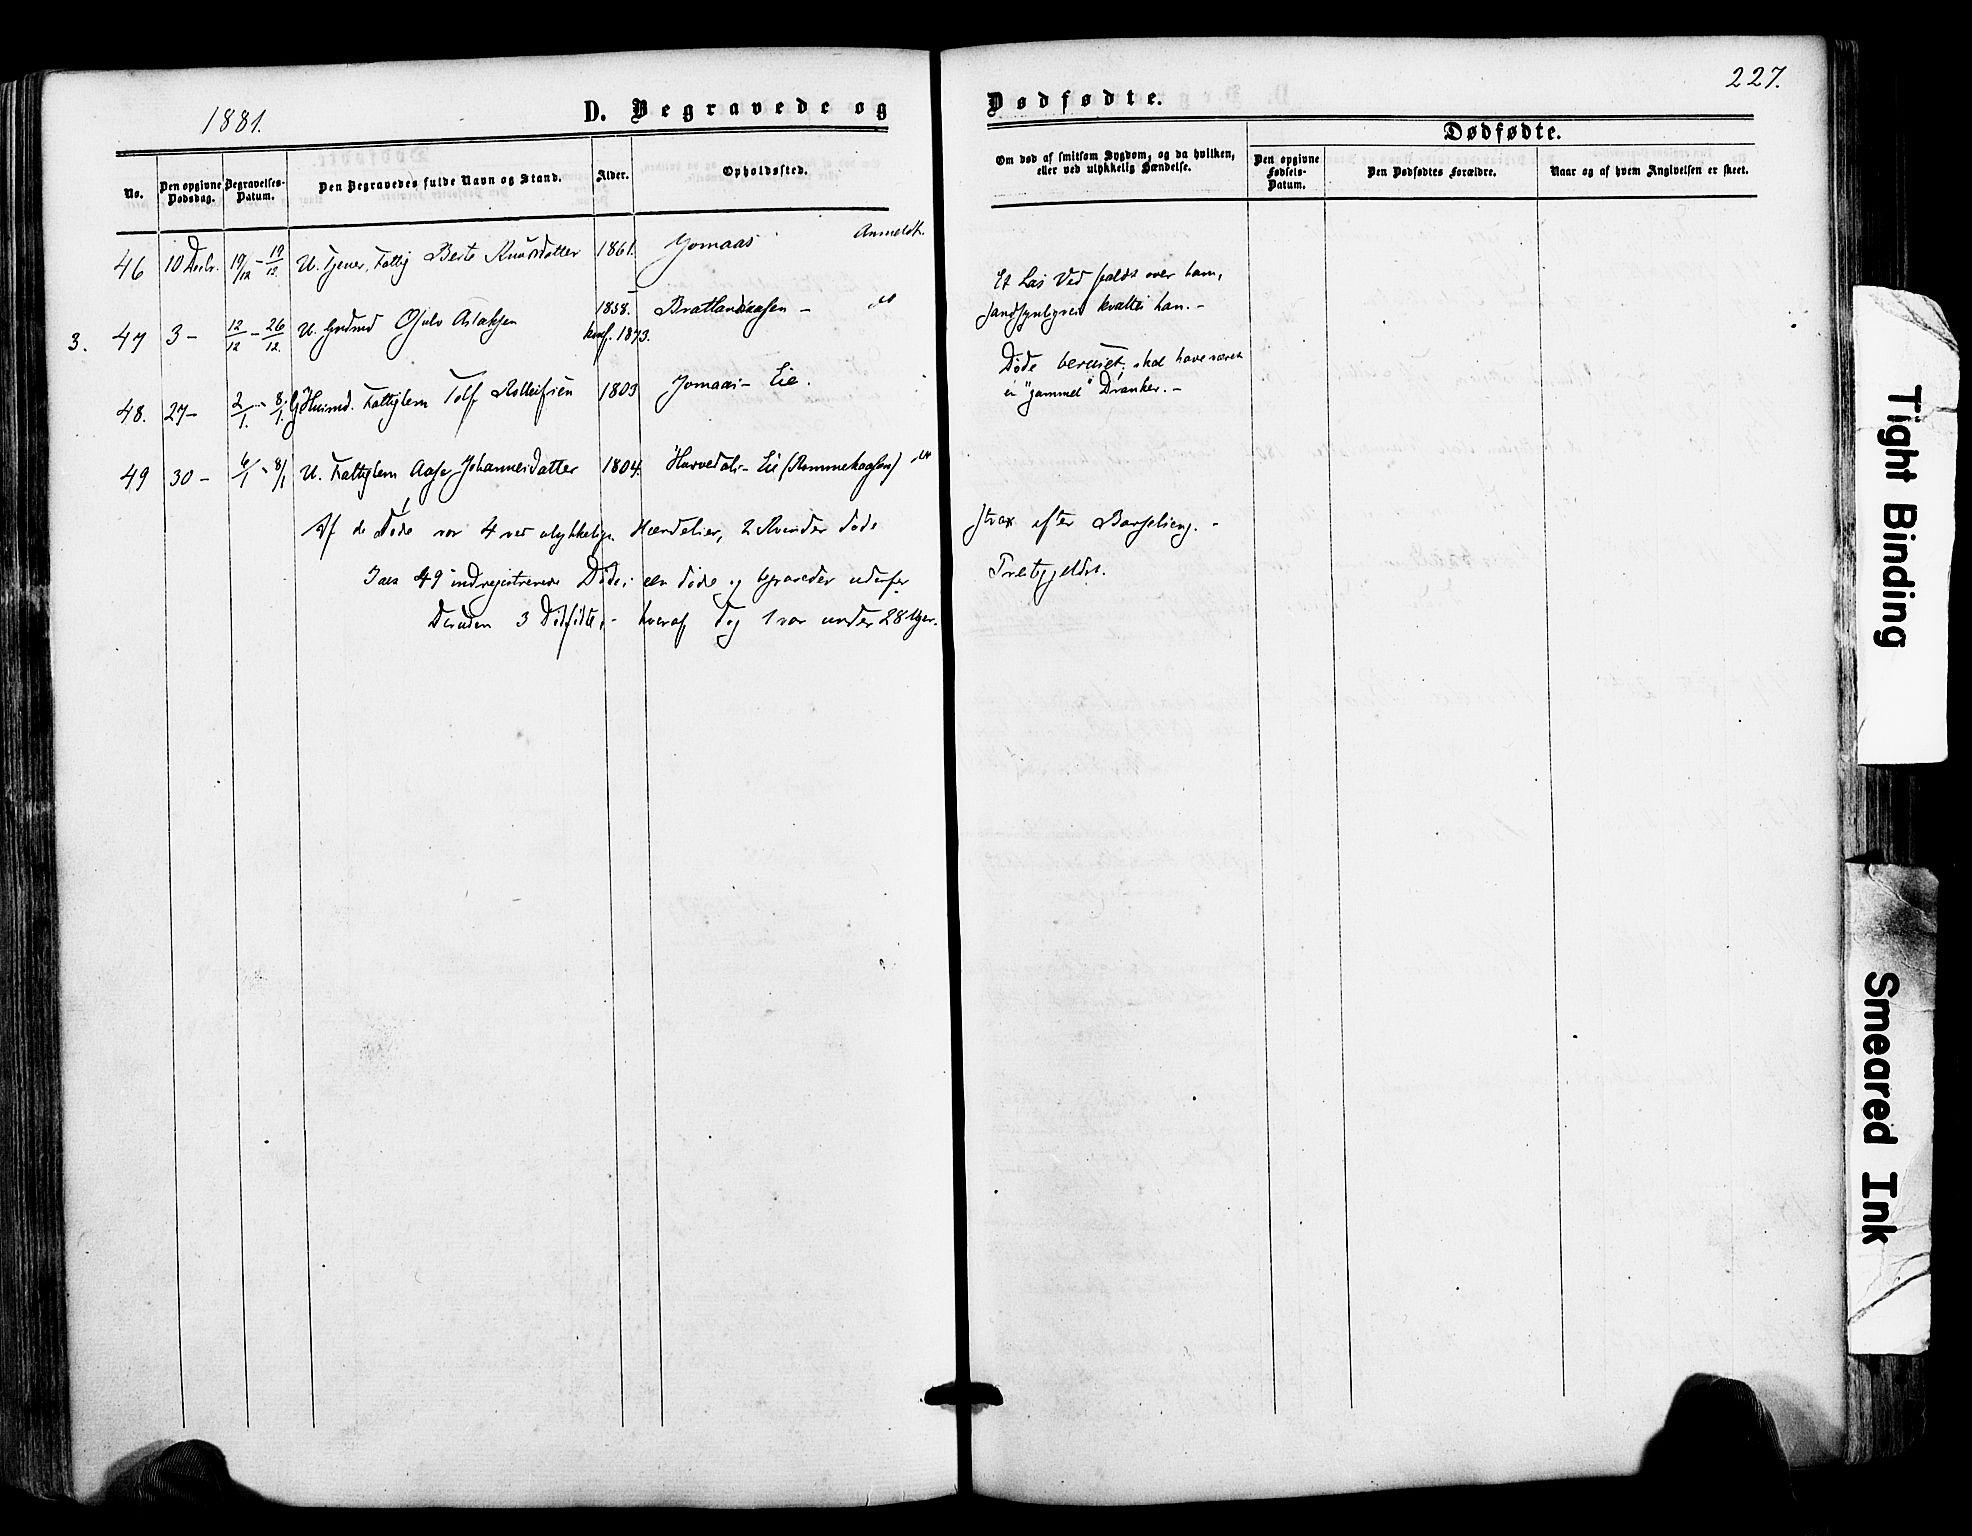 1881.
D. Begravede og
Dødfødte.
227.
No.
Den opgivne Dødsdag.
Begravelses-Datum.
Den Begravedes fulde Navn og Stand.
Alder.
Opholdssted.
Om død af smitsom Sygdom, og da hvilken,
eller ved ulykkelig Hændelse.
Dødfødte.
Den opgivne Fødsels-Datum.
Den Dødfødtes Forældre.
Naar og af hvem Angivelsen er skeet.
46 10 Decbr. 19/12 - 19/12. U. Tjener, Fattig Berte Knudsdatter 1861. Jomaas Anmeldt.
Et Læs Ved faldt over ham,
3. 47 3 - 12/12 - 26/12. U. Aslaksen 1838. Konf. 1873. do
sandsynligvis kvaltes han. -
Døde beruset; skal have været
48. 27 - 2/1. - 8/1. Husmd. Fattiglem Rolleifsen 1803 Jomaas - Eie.
en "gammel" Dranker. -
49 30 - 6/1 - 8/1 U. Fattiglem Aase Johannesdatter 1804. Eie do
Af de Døde var 4 ved ulykkelige Hændelser, 2 Kvinder døde
strax efter Barselseng. -
49 indregistrerede Døde; een døde og begravedes udenfor
Præstegjeldet.
Desuden 3 Dødfødte, - hvoraf dog 1 var under 28 Uger.
Tight Binding
Smeared Ink